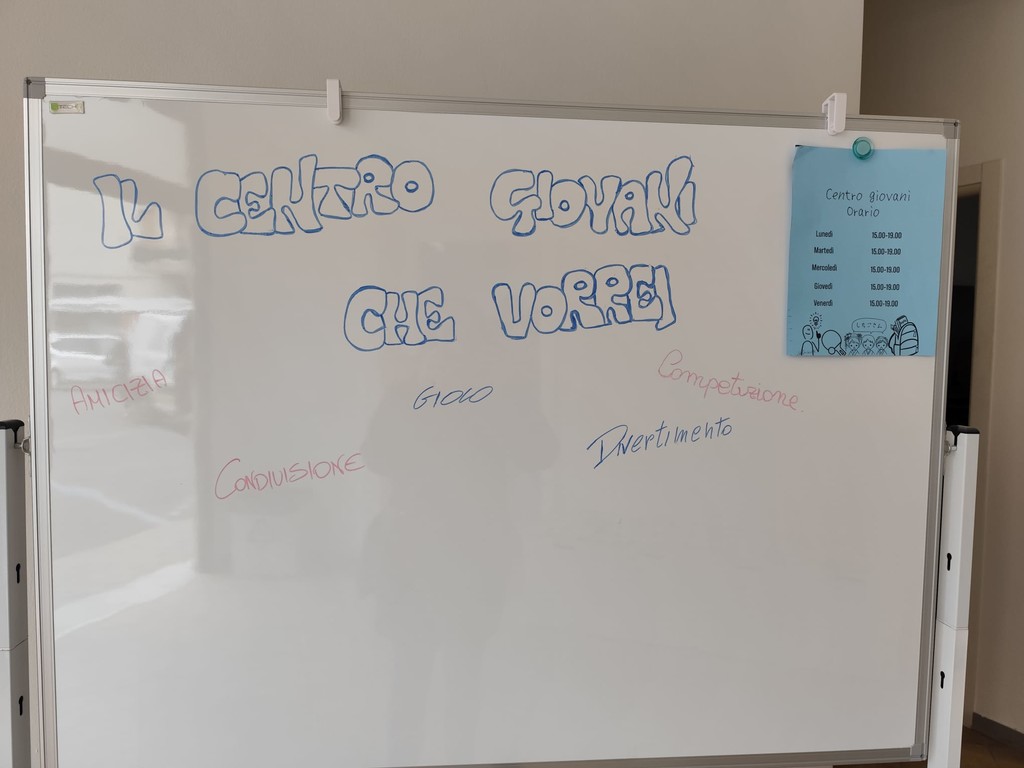 IL CENTRO GIOVANI
CHE VORREI
AMICIZIA
GIOCO
Competizione
CONDIVISIONE
Divertimento
Centro giovani
Orario
Lunedì 15.00-19.00
Martedì 15.00-19.00
Mercoledì 15.00-19.00
Giovedì 15.00-19.00
Venerdì 15.00-19.00